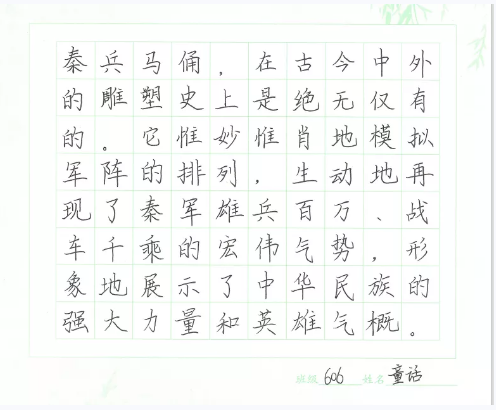 秦兵马俑，在古今中外
的雕塑史上是绝无仅有
的。它惟妙惟肖地模拟
军阵的排列，生动地再
现了秦军雄兵百万、战
车千乘的宏伟气势，形
象地展示了中华民族的
强大力量和英雄气概。
班级 606 姓名 童话